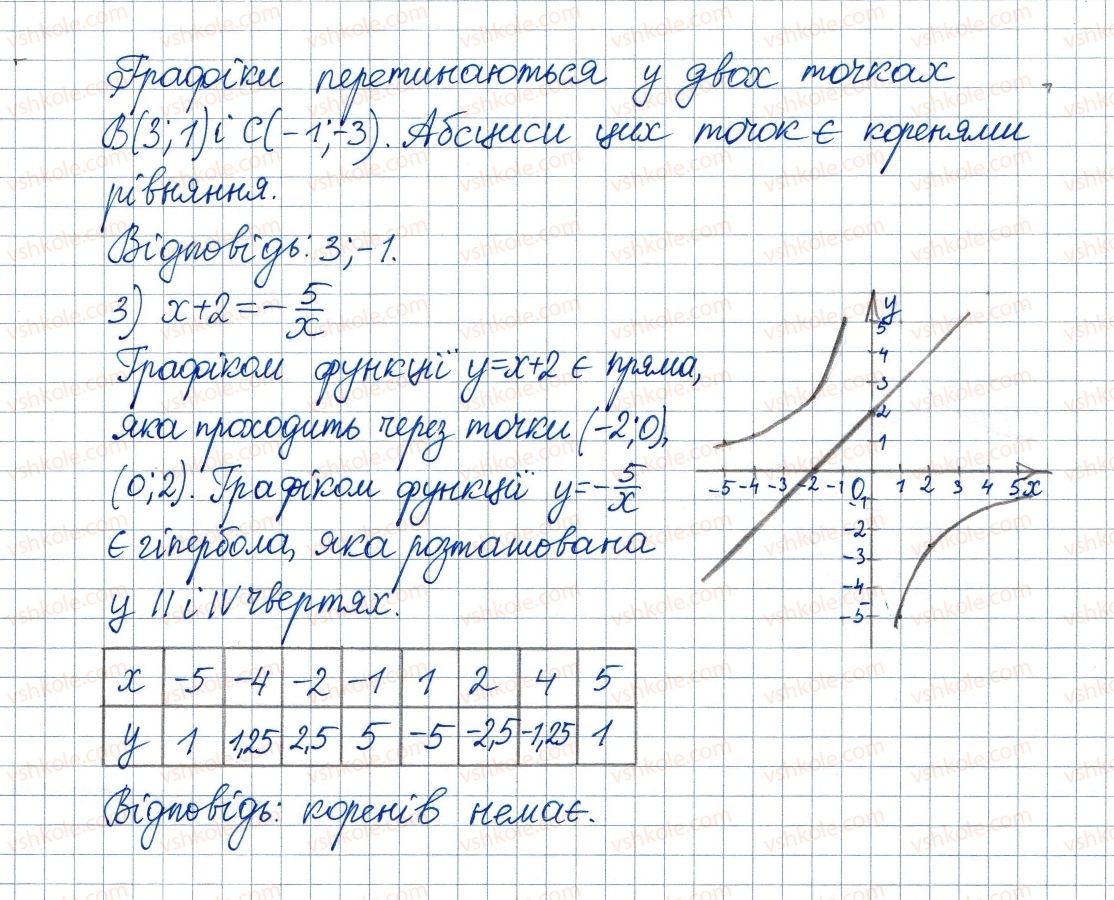 Графіки перетинаються у двох точках
В(3;1) і С(-1;-3). Абсциси цих точок є коренями
рівняння.
Відповідь: 3;-1.
3) x+2=-5/x
Графіком функції y=x+2 є пряма,
яка проходить через точки (-2;0),
(0;2). Графіком функції y=-5/x
є гіпербола, яка розташована
у II і IV чвертях.
x -5 -4 -2 -1 1 2 4 5
y 1 1,25 2,5 5 -5 -2,5 -1,25 1
Відповідь: коренів немає.
y
5
4
3
2
1
-5 -4 -3 -2 -1 0 1 2 3 4 5 x
-1
-2
-3
-4
-5
vshkole.com